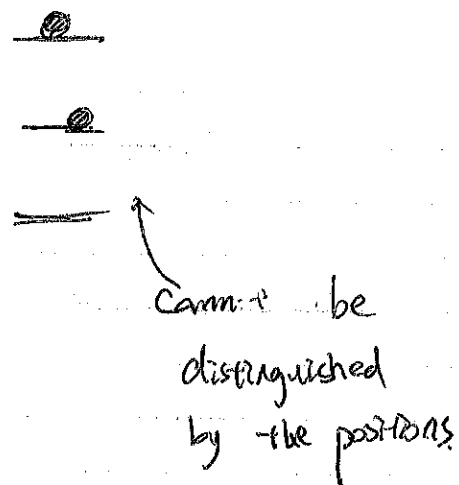 Cannot be
distinguished
by the positions.